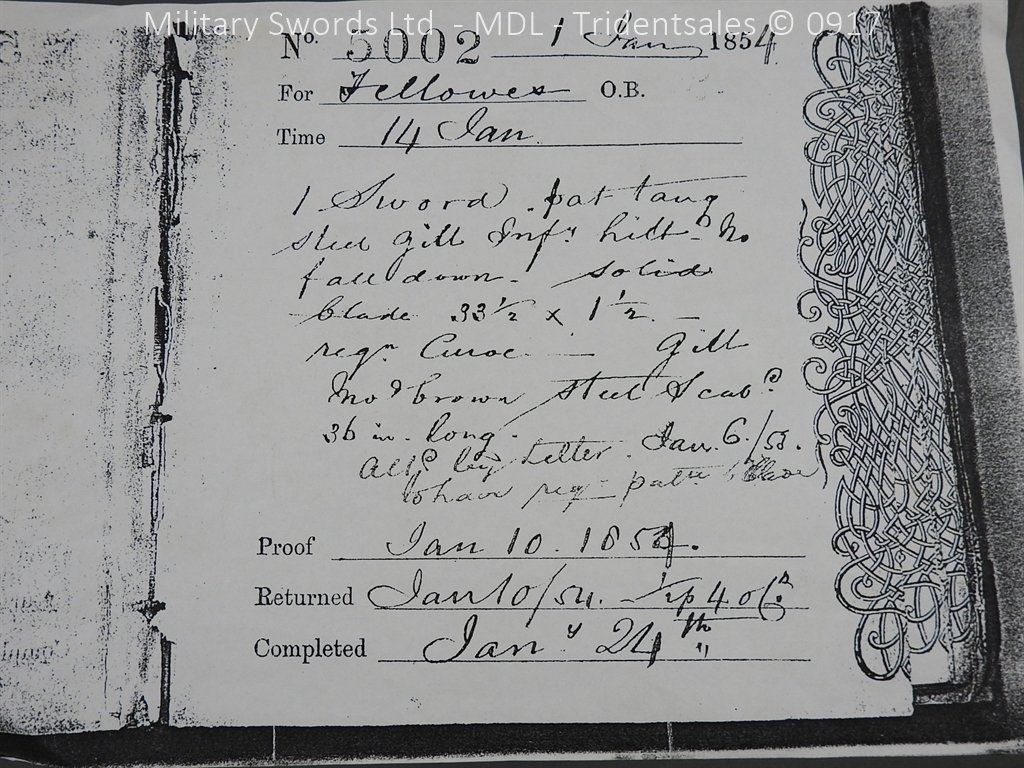 Military Swords Ltd. - MDL - Tridentsales © 0917
No. 5002 1 Jan 1854
For Fellowes O.B.
Time 14 Jan
1 Sword pat tang
steel gilt Infy hilt No
fall down - solid
blade 33 1/2 x 1 1/2 -
regn Curve - Gilt
Mod brown steel Scabd
36 in. long.
by Letter. Jan. 6./53.
to have regn pattn
Proof Jan 10. 1854.
Returned Jan 10/54.
Completed Jany 24th "